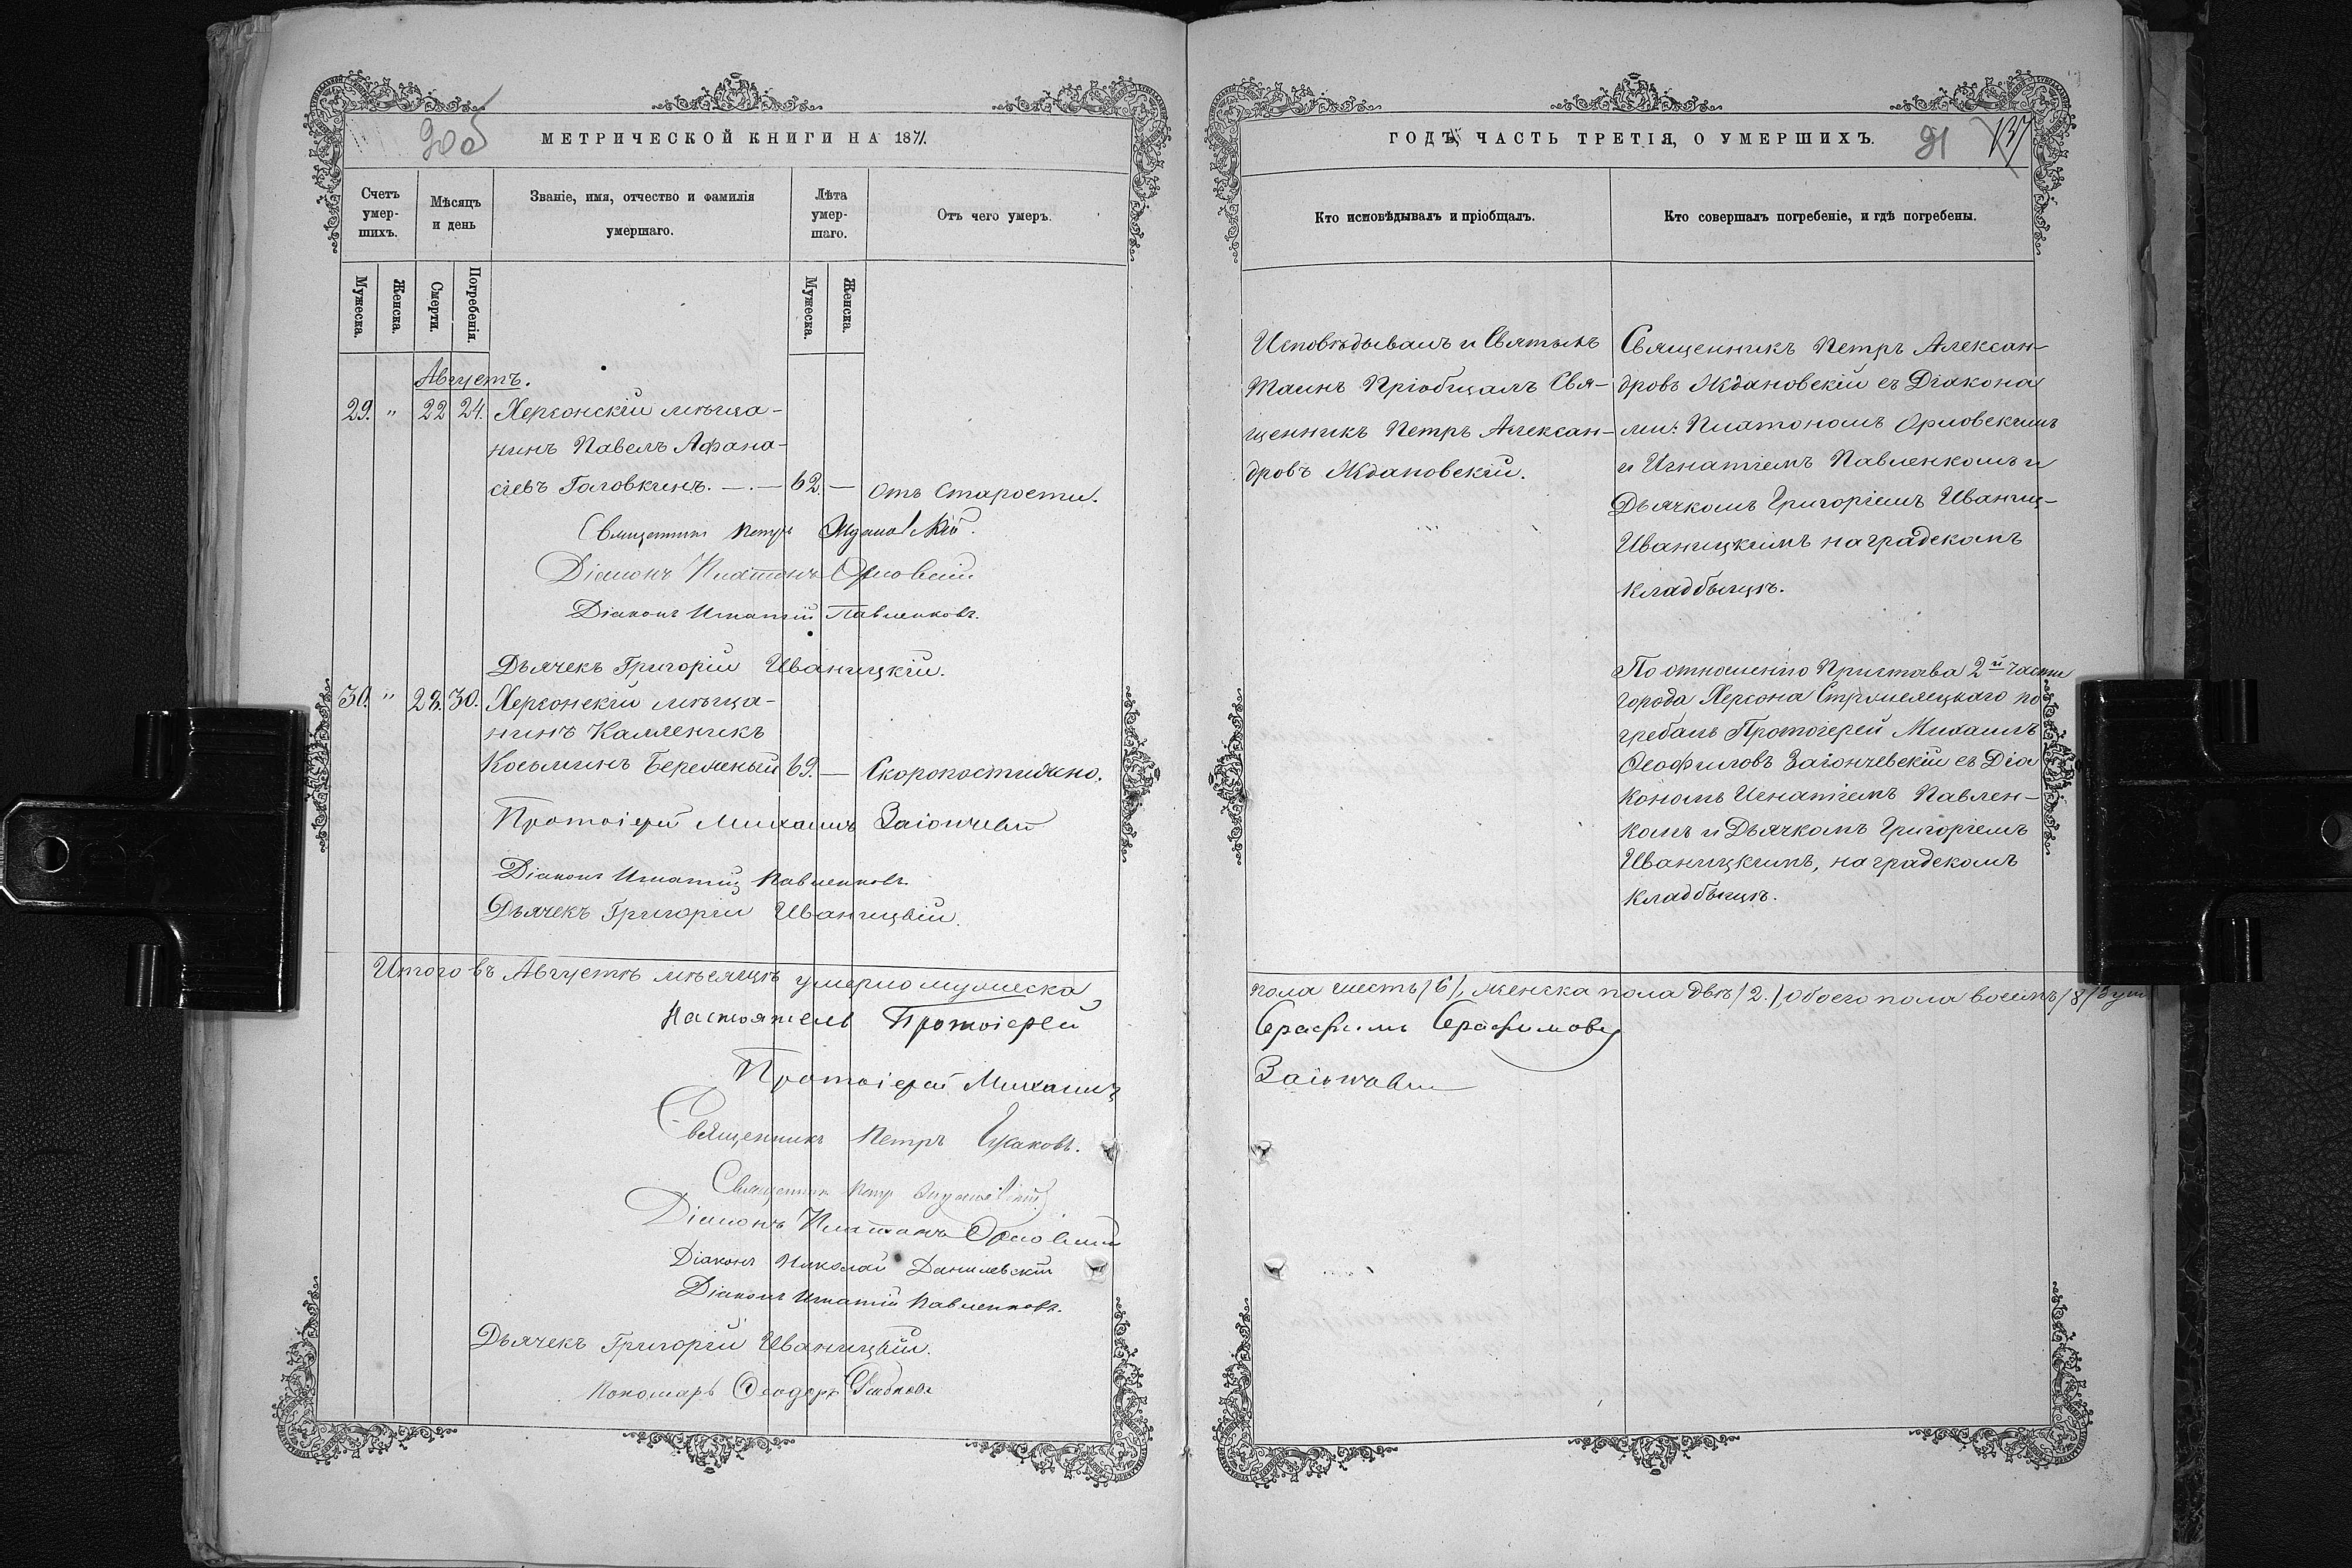 90об
МЕТРИЧЕСКОЙ КНИГИ НА 1871.
Счетъ умер-шихъ.
Мѣсяцъ и день
Званіе, имя, отчество и фамилія умершаго.
Лѣта умер-шаго.
Отъ чего умеръ.
Мужеска.
Женска.
Смерти.
Погребенія.
Мужеска.
Женска.
Августъ.
29. " 22 24. Херсонскій мѣща-
нинъ Павелъ Афана-
сіевъ Головкинъ. — . — 62. — Отъ старости.
Священникъ Петръ Ждановскій.
Діаконъ Платонъ Орловскій
Діаконъ Игнатій Павленковъ.
Дьячекъ Григорій Иваницкій.
30. " 28. 30. Херсонскій мѣща-
нинъ Калленикъ
Косьминъ Береженый 69. — Скоропостижно.
Протоіерей Михаилъ Заіончевскій
Діаконъ Игнатій Павленковъ.
Дьячекъ Григорій Иваницкій.
Итого въ Августѣ мѣсяцѣ умерло мужеска
Настоятель Протоіерей
Протоіерей Михаилъ
Священникъ Петръ
Священникъ Петръ Ждановскій
Діаконъ Платонъ Орловскій
Діаконъ Николай Данилевскій
Діаконъ Игнатій Павленковъ.
Дьячекъ Григорій Иваницкій.
Пономарь Ѳеодоръ
ГОДЪ, ЧАСТЬ ТРЕТІЯ, О УМЕРШИХЪ.
91
137
Кто исповѣдывалъ и пріобщалъ.
Кто совершалъ погребеніе, и гдѣ погребены.
Исповѣдывалъ и Святыхъ
Таинъ Пріобщалъ Свя-
щенникъ Петръ Алексан-
дровъ Ждановскій.
Священникъ Петръ Алексан-
дровъ Ждановскій съ Діакона
ми: Платономъ Орловскимъ
и Игнатіемъ Павленкомъ и
Дьячкомъ Григоріемъ Иваниц-
Иваницкимъ на градскомъ
кладбыщѣ.
По отношенію Пристава 2й части
города Херсона Стрымеляцкаго по
гребалъ Протоіерей Михаилъ
Ѳеофиловъ Заіончевскій съ Діа
кономъ Игнатіемъ Павлен-
комъ и Дьячкомъ Григоріемъ
Иваницкимъ, на градскомъ
кладбыщѣ.
пола шесть /6/, женска пола двѣ /2./, обоего пола восемь /8/
Серафимъ Серафимовъ
Заіончевскій